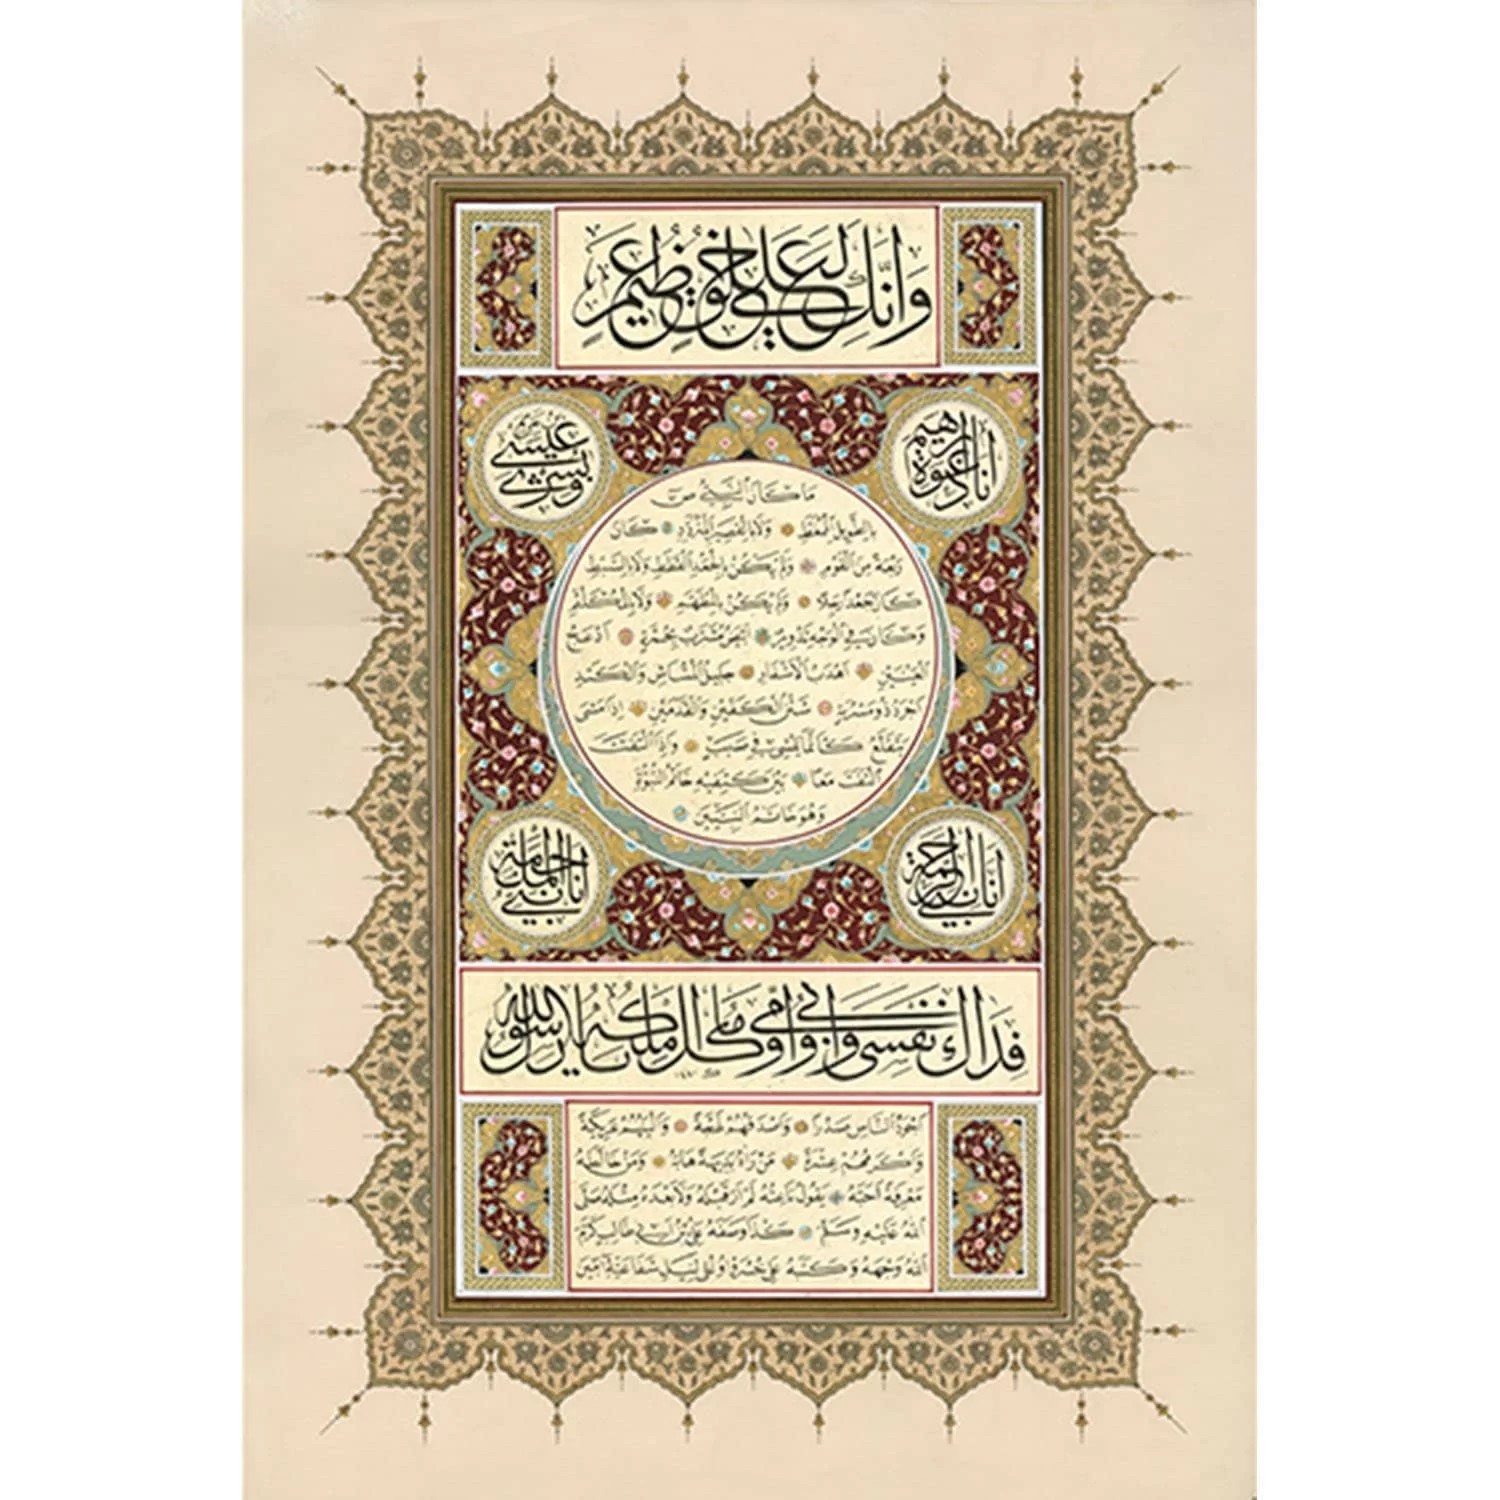 وَإِنَّكَ لَعَلَىٰ خُلُقٍ عَظِيمٍ
انا دعوة ابرهيم
وبشرى عيسى
ما كان النبي ص
بالطويل الممغط ولا بالقصير المتردد كان
ربعة من القوم ولم يكن بالجعد القطط ولا بالسبط
كان جعدا رجلا ولم يكن بالمطهم ولا بالمكلثم
وكان في الوجه تدوير ابيض مشرب بحمرة ادعج
العينين اهدب الاشفار جليل المشاش والكتد
اجرد ذو مسربة شثن الكفين والقدمين اذا مشى
يتقلع كانما يمشي في صبب واذا التفت
التفت معا بين كتفيه خاتم النبوة
وهو خاتم النبيين
انا نبي الرحمة
انا نبي الملحمة
فداك نفسي وابي وامي وكل يا رسول الله
اجود الناس صدرا واصدقهم لهجة والينهم عريكة
واكرمهم عشرة من راه بديهة هابه ومن خالطه
معرفة احبه يقول ناعته لم ار قبله ولا بعده مثله صلى
الله عليه وسلم كذا وصفه علي بن ابي طالب كرم
الله وجهه وكتبه علي لنيل شفاعته امين